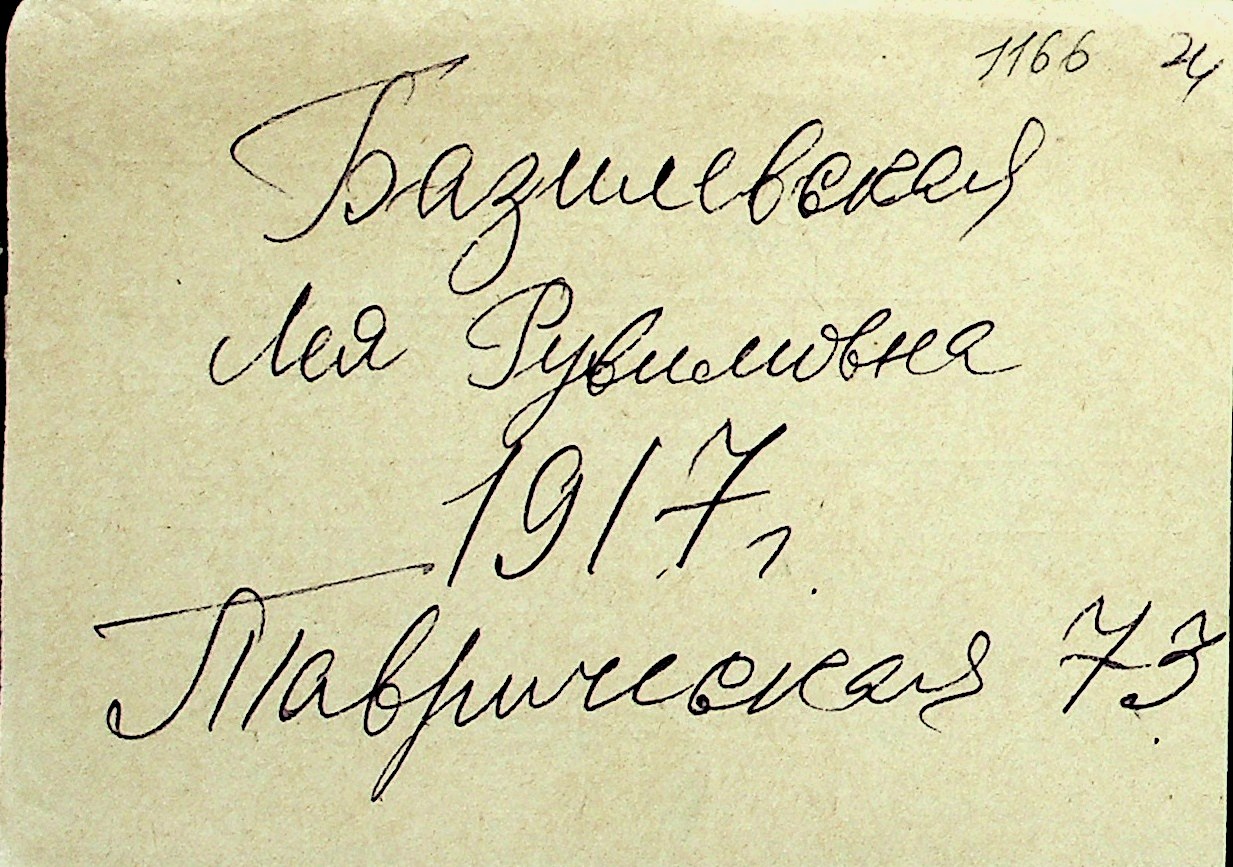 1166
Базилевская
Лея Рувимовна
1917 г.
Таврическая 73